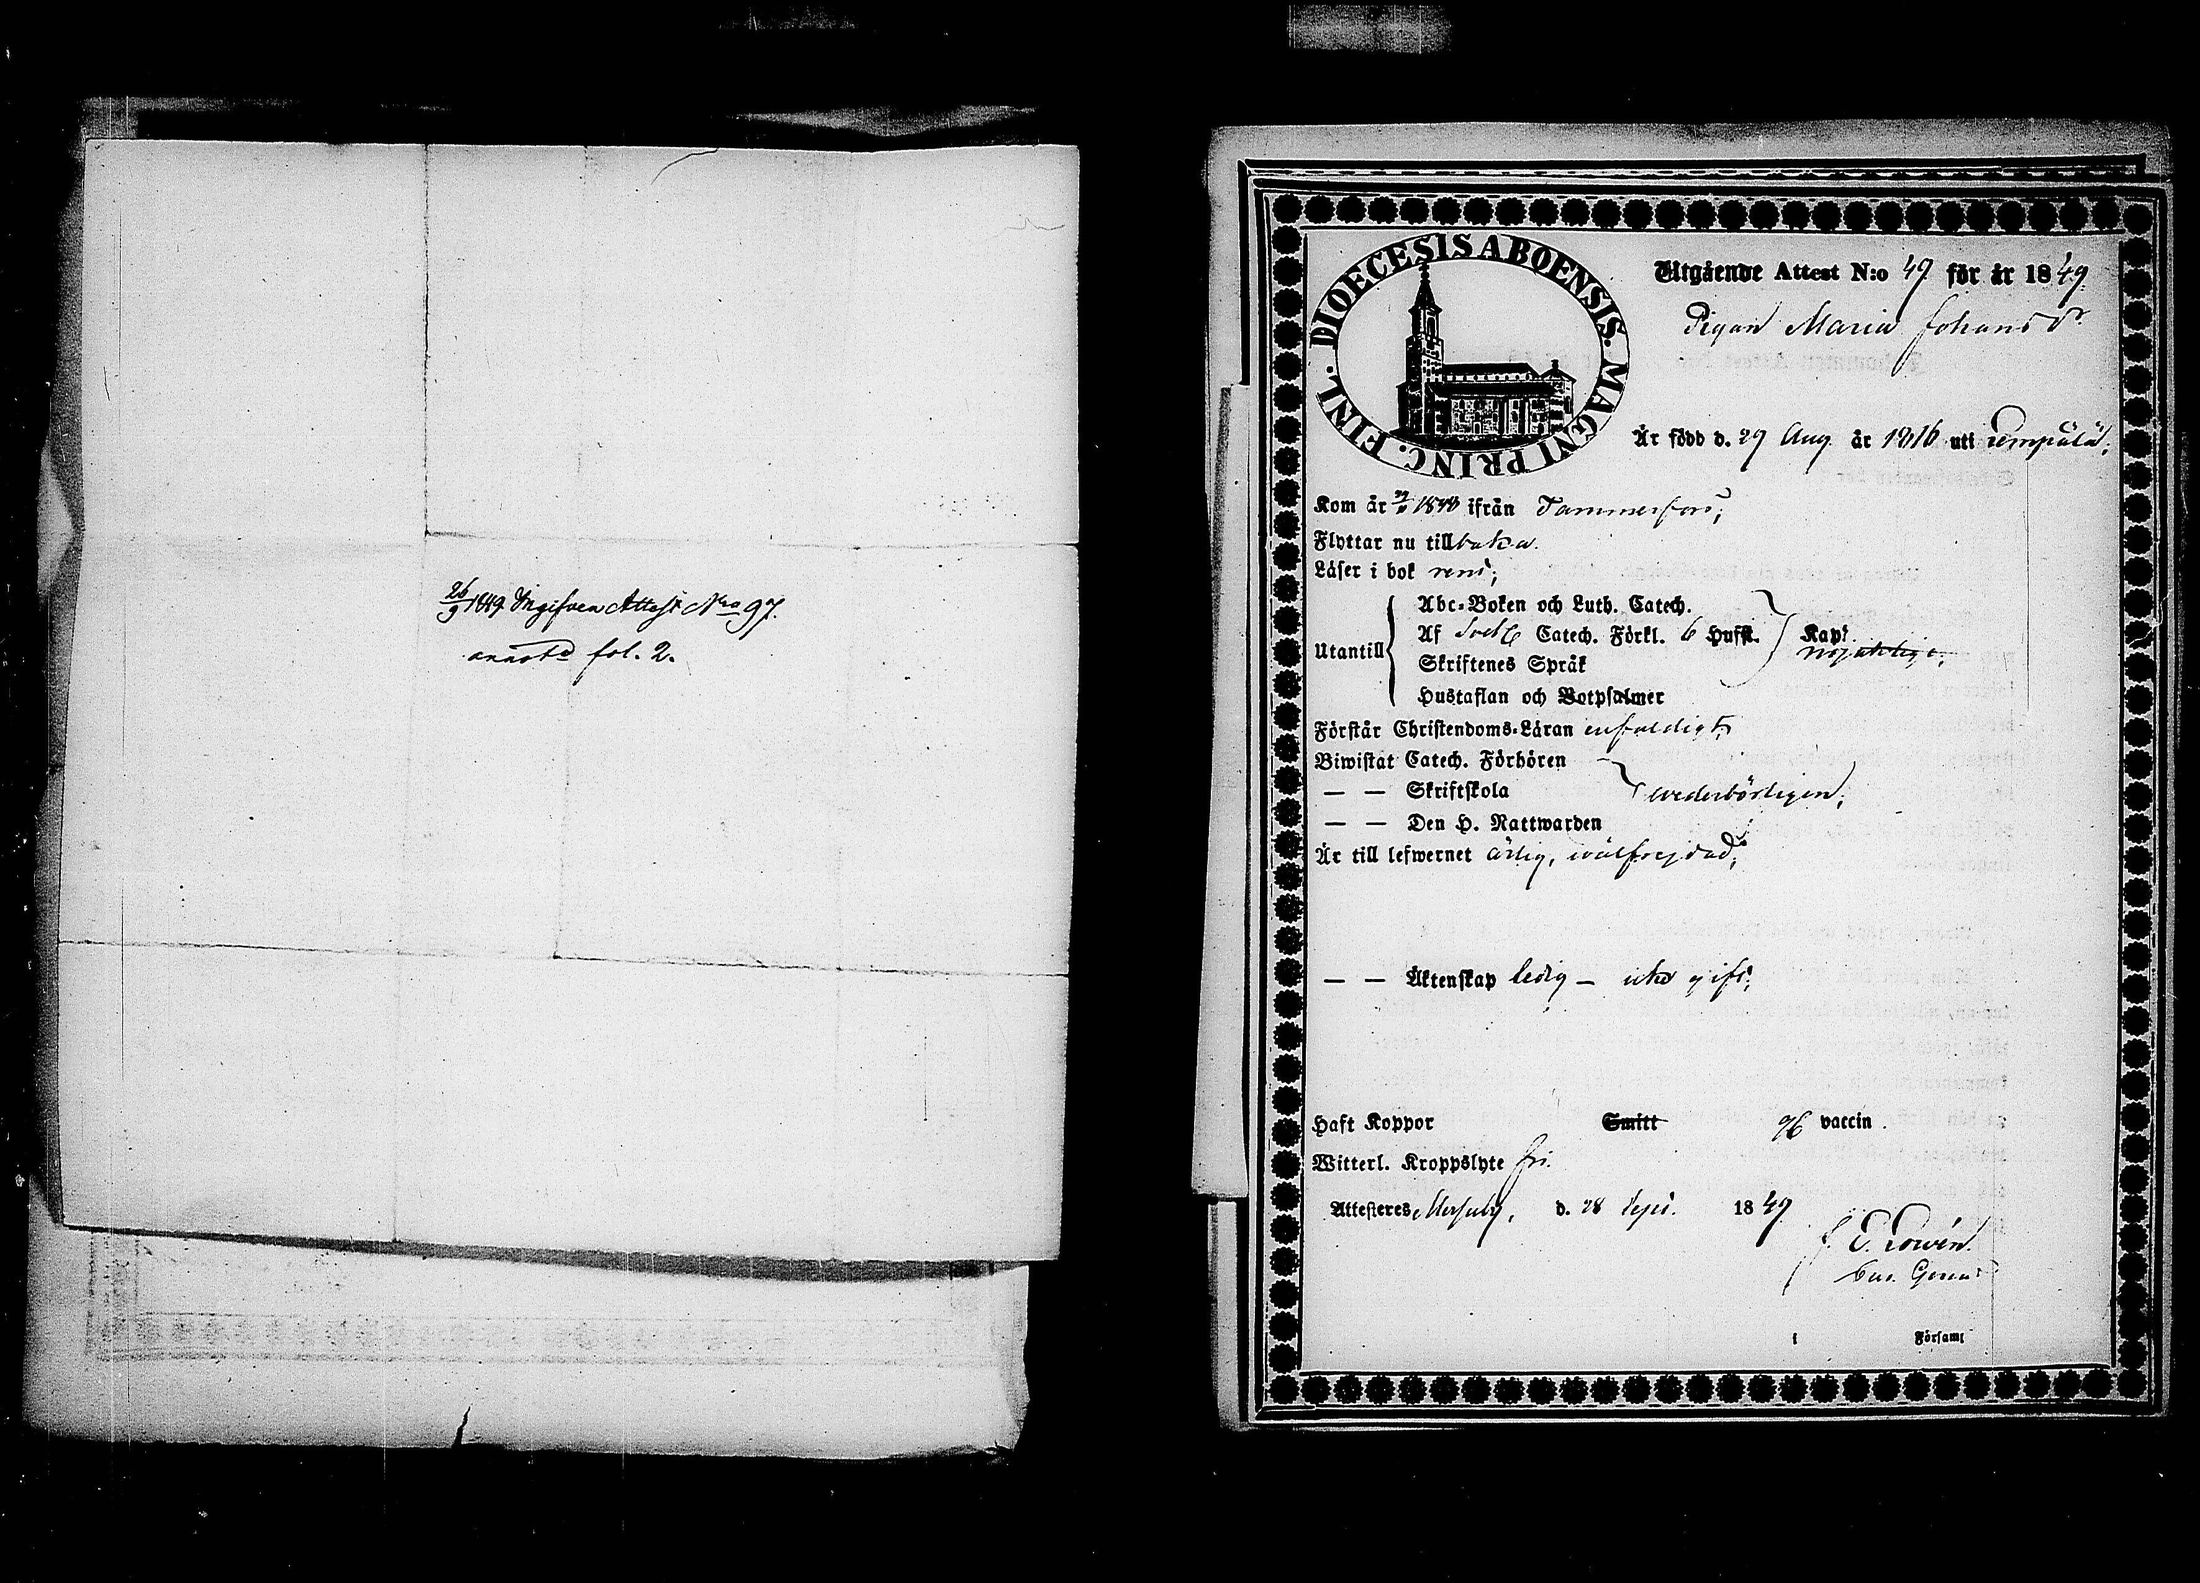 26/9 1849 Ingifven Attest Nro 97.
annotd fol. 2.
DIOECESIS ABOENSIS. MAGNI PRINC. FINL.
Utgående Attest N:o 49 för år 1849.
Pigan Maria Johansdr
Är född d. 29 Aug. år 1816 uti Lempälä;
Kom år 1848 ifrån Tammerfors;
Flyttar nu tillbaka.
Läser i bok rent;
Utantill
Abc-Boken och Luth. Catech.
Af Catech. Förkl. 6 Hufst. Kap.
Skriftenes Språk
nöjaktigt;
Hustaflan och Botpsalmer
Förstår Christendoms-Läran enfaldigt;
Biwistat Catech. Förhören
— — Skriftskola wederbörligen;
— — Den H. Nattwarden
Är till lefwernet ärlig, wälfrejdad;
— — Äktenskap ledig — icke gift;
Haft Koppor Smitt vaccin.
Witterl. Kroppslyte fri.
Attesteres d. 28 Sept. 1849
i Församl